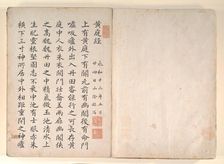 黃庭經
上有黃庭下有關元前有幽闕後有命門
噓吸廬外出入丹田審能行之可長存黃
庭中人衣朱衣關門壯籥蓋兩扉幽闕俠
之高魏魏丹田之中精氣微玉池清水上
生肥靈根堅志不衰中池有士服赤朱
橫下三寸神所居中外相距重閉之神